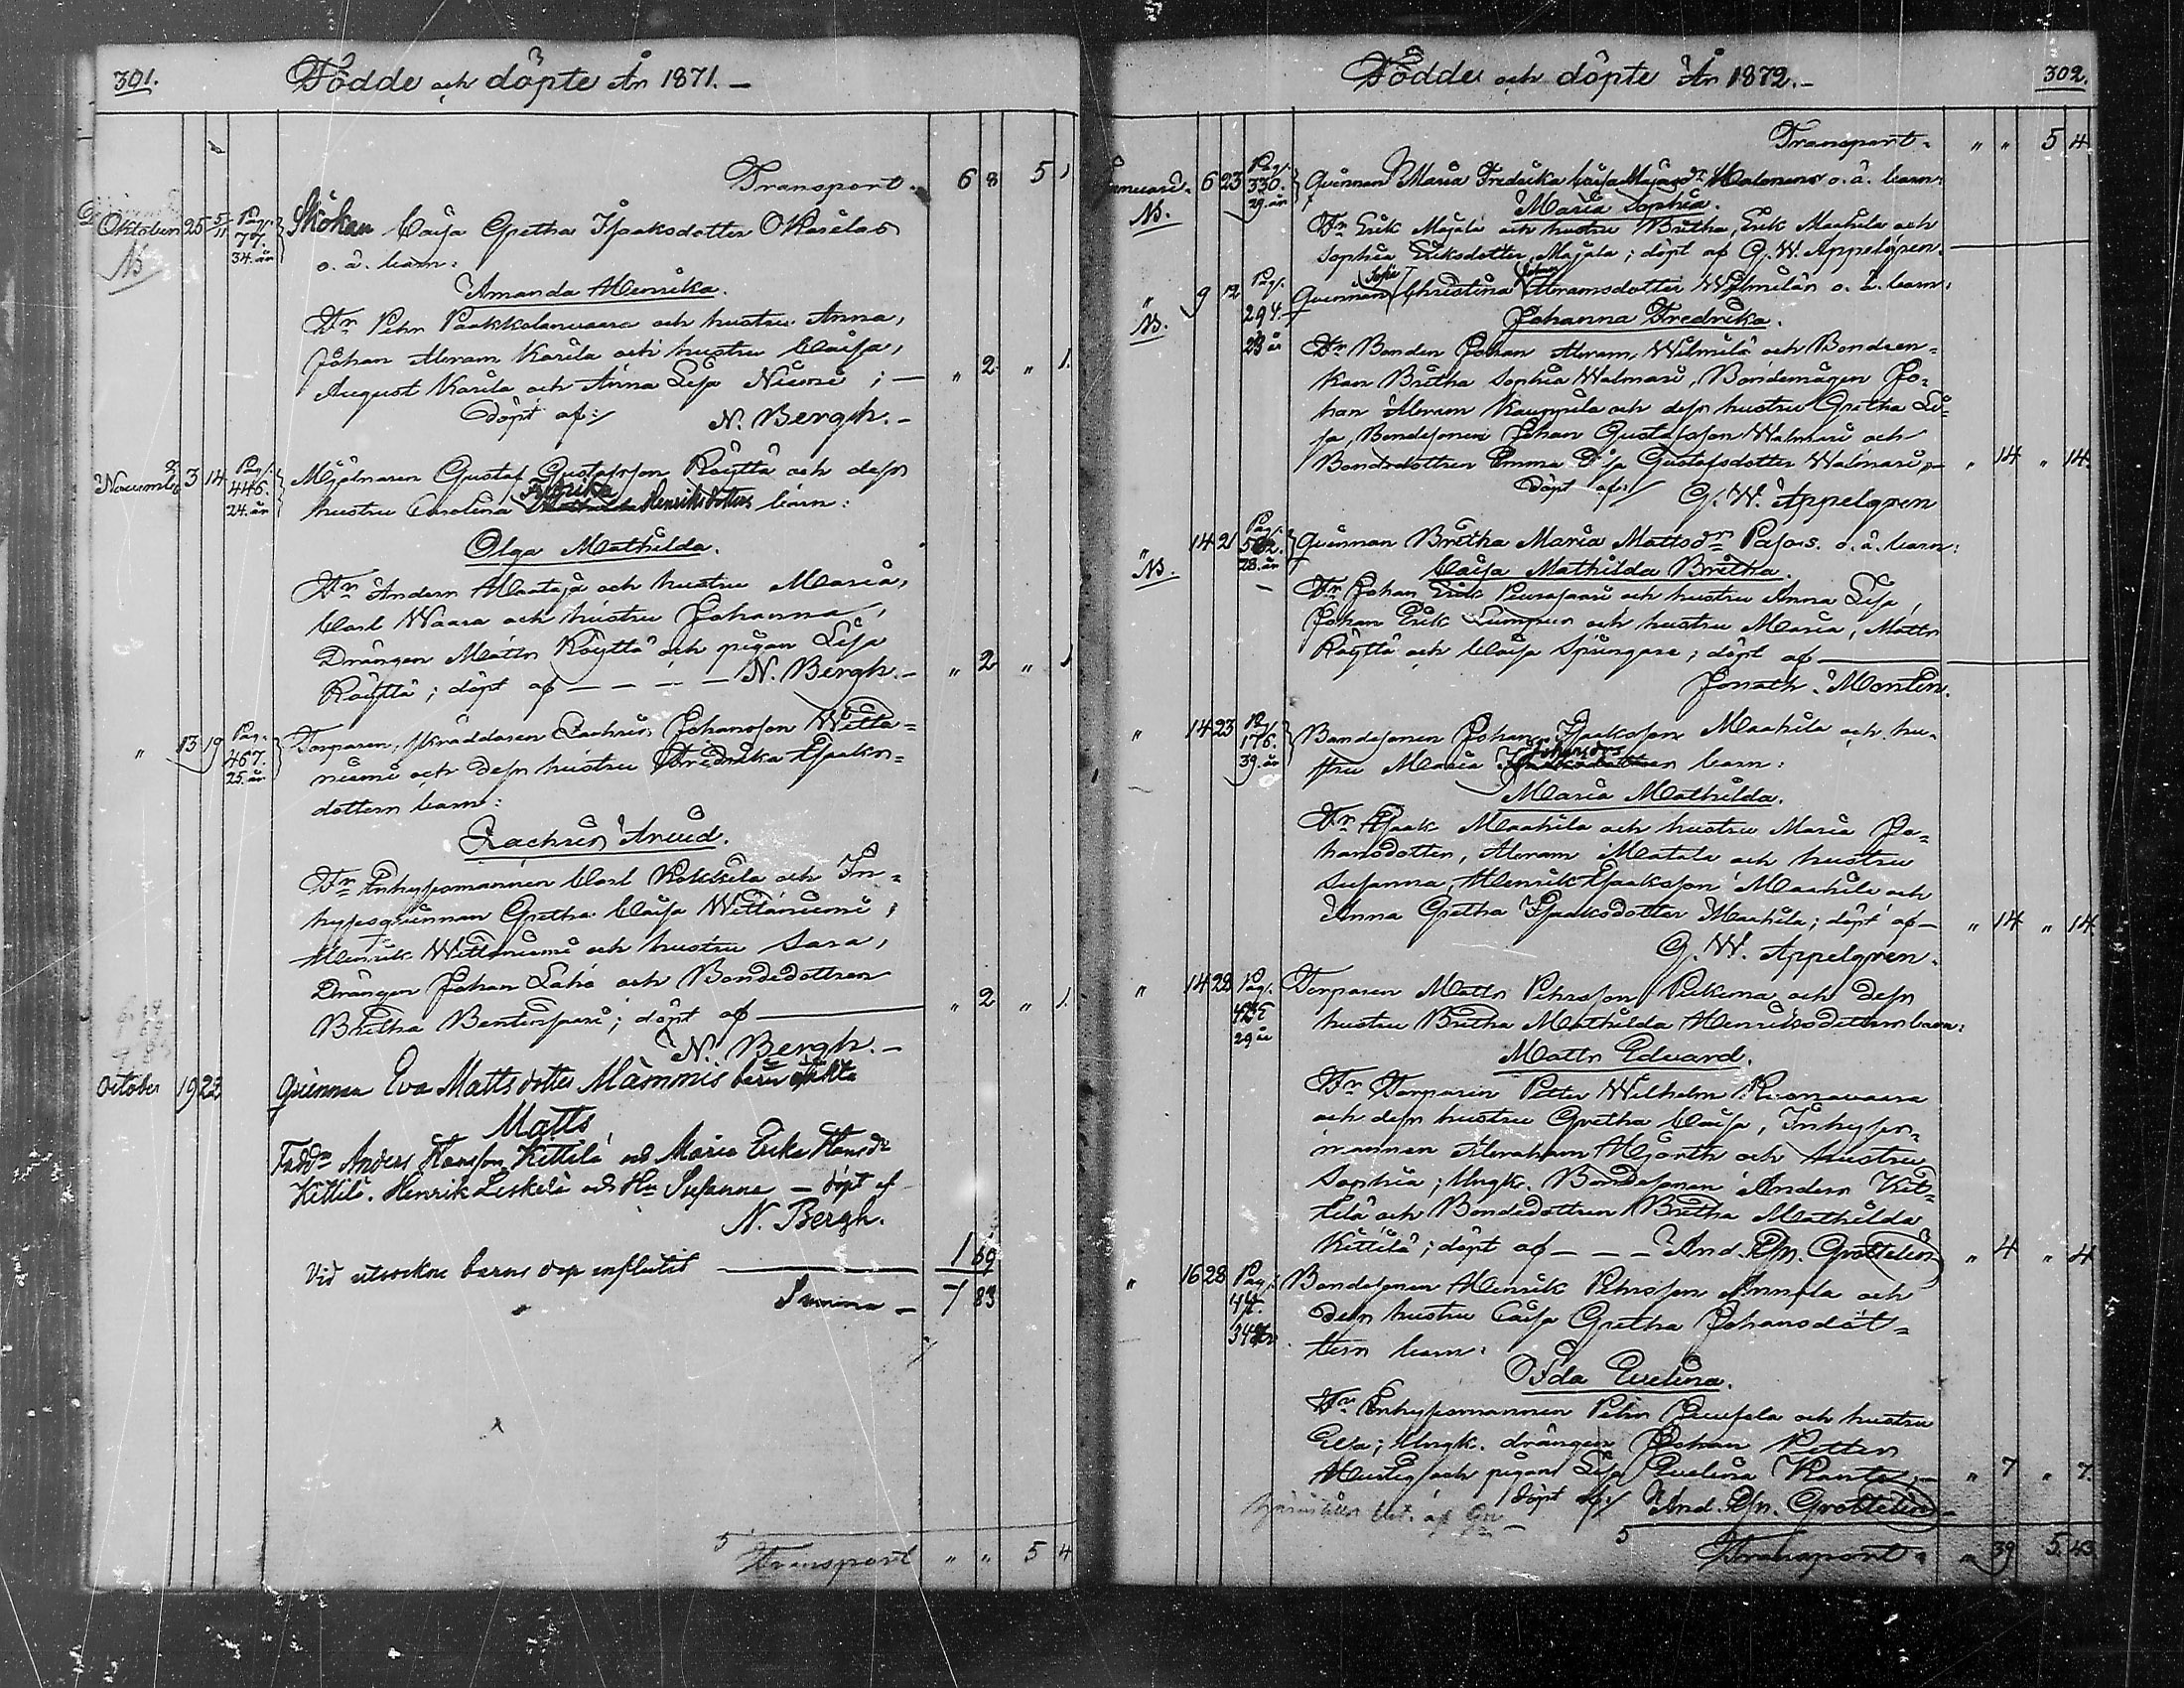 301.
Födde och döpte År 1871.—
Transport. 6 8 5 1
Oktober 25 5/11 Pag. 77. 34. år Skökan Caisa Gretha Isaksdotter Karelas
NB o. ä. barn:
Amanda Henrika.
Fr Pehr Paakkolanvaara och hustru Anna,
Johan Abram Karila och hustru Caisa,
August Karila och Anna Lisa Niemi; — " 2 " 1.
döpt af:/ N. Bergh.—
November 3 14 Pag. 446. 24. år Mjölnaren Gustaf Gustafsson Röyttä och dess
hustru Carolina Fredrika Henriksdotters barn:
Olga Mathilda.
Fr Anders Maataja och hustru Maria,
Carl Waara och hustru Johanna,
Drängen Matts Röyttä och pigan Lisa
Röyttä; döpt af — — — — N. Bergh.— " 2 " 1
" 13 19 Pag. 467. 25. år Torparen, skräddaren Zachris Johansson Witta=
niemi och dess hustru Fredrika Isaks=
dotters barn:
Zachris Arvid.
Fr Inhysesmannen Carl Kokkila och In=
hysesqvinnan Gretha Caisa Wittaniemi,
Henrik Wittaniemi och hustru Sara,
Drängen Johan Laho och Bondedottren
Britha; döpt af — " 2 " 1.
N. Bergh.—
October 19 23 Qvinnan Eva Mattsdotter Mämmis barn
Matts
Faddr Anders Hansson Kittilä och Maria Erika Hansdr
Kittilä. Henrik Leskelä och Hu Susanna — döpt af
N. Bergh.
Vid utsockne barns dop influtit — 1 69
Summa — 7 83
5 Transport " " 5 4
Födde och döpte År 1872.—
302.
Transport. " " 5 4
Januari. 6 23 Pag. 330. 29. år Qvinnan Maria Fredrika o. ä. barn:
NB. Maria Sophia.
Fr Erik Majala och hustru Britha, Erik Maahila och
Sophia Eriksdotter Majala; döpt af G. W. Appelgren.
" 9 12 Pag. 294. 23 år Qvinnan Sofia Christina Abramsdotter Wilmilä o. ä. barn:
NB. Johanna Fredrika.
Fr Bonden Johan Abram Wilmilä och Bondeen=
kan Britha Sophia Walmari, Bondemågen Jo=
han Abram Kauppila och dess hustru Gretha Li=
sa, Bondesonen Johan Gustafsson Walmari och
Bondedottren Emma Lisa Gustafsdotter Walmari — " 14 " 14.
döpt af:/ G. W. Appelgren
" 14 21 Pag. 28. år Qvinnan Britha Maria Mattsdr Pajas. o. ä. barn:
NB. Caisa Mathilda Britha.
Fr Johan Erik Peurasaari och hustru Anna Lisa,
Johan Erik och hustru Maria, Matts
Röyttä och Caisa Springare; döpt af —
Jonath. Montin.
" 14 23 Pag. 176. 39. år Bondesonen Johan Isaksson Maahila och hu=
stru Maria Johansdrs barn:
Maria Mathilda.
Fr Isaak Maahila och hustru Maria Jo=
hansdotter, Abram Matala och hustru
Susanna, Henrik Isaksson Maahila och
Anna Gretha Isaksdotter Maahila; döpt af — " 14 " 14
G. W. Appelgren.
" 14 22 Pag. 29 år Torparen Matts Pehrsson och dess
hustru Britha Mathilda Henriksdotters barn:
Matts Edvard.
Fr Torparen Petter Wilhelm Ruonavaara
och dess hustru Gretha Caisa, Inhyses=
mannen Abraham Hjorth och hustru
Sophia; Ungk. Bondesonen Anders Kit=
tilä och Bondedottren Britha Mathilda
Kittilä; döpt af — — — And. Joh. Grottelin " 4 " 4
" 16 28 Pag. 34 år Bondesonen Henrik Pehrsson Annala och
dess hustru Caisa Gretha Johansdot=
ters barn:
Ida Evelina.
Fr Inhysesmannen Pehr Juusola och hustru
Elsa; Ungk. drängen Johan Petter
Hustig och pigan Lisa Evelina Kanto; — " 7 " 7.
döpt af:/ And. Joh. Grottelin
5 Transport. " 39 5. 43